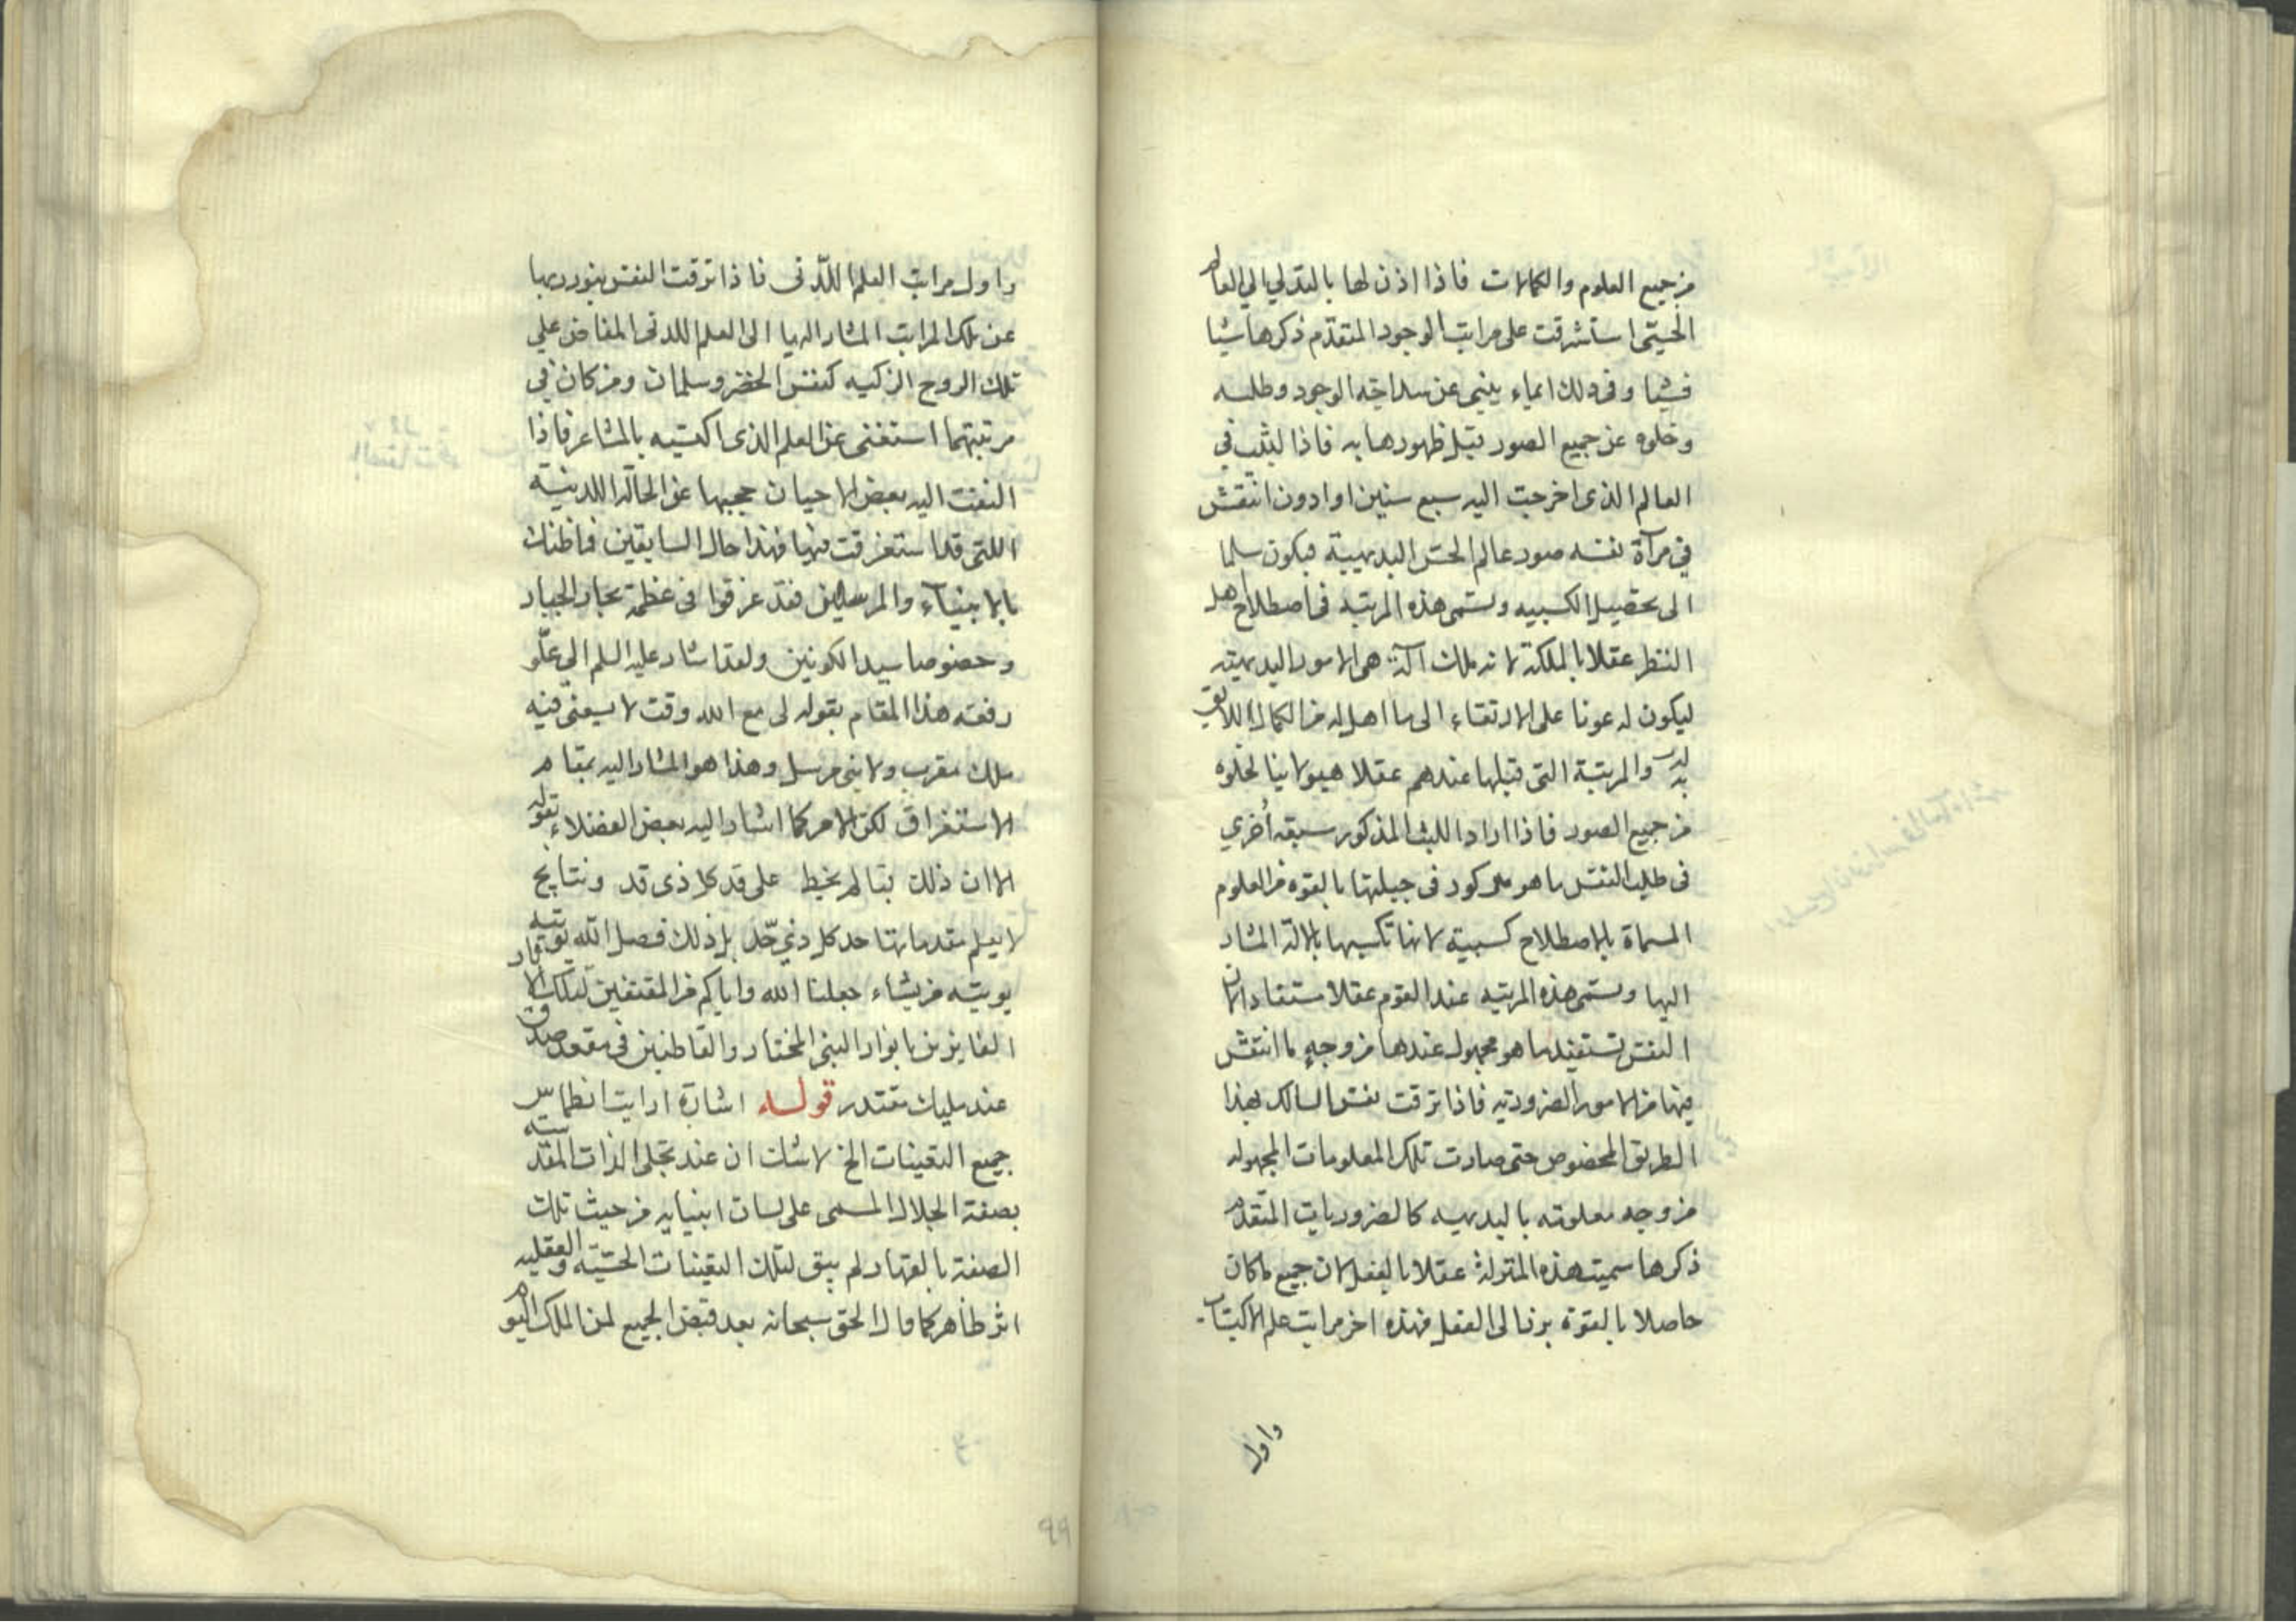 من جميع العلوم والكمالات فاذا اذن لها بالتدلي الي العالم
الحسّى استشرقت على مراتب الوجود المتقدّم ذكرها شيا
فشيا وفى ذلك ايماء ينبى عن سداجة الوجود وطلسه
وخلوه عن جميع الصور قبل ظهورها به فاذا لبثت في
العالم الذى اخرجت اليه سبع سنين او ادون انتقش
في مرآة نفسه صور عالم الحس البديهيية فيكون سلما
الى تحصيل الكسبيه وتسمى هذه المرتبه فى اصطلاح اهل
النظر عقلا بالملكة لانه ملك آلة هى الامور البديهيته
ليكون له عونا على الارتقاء الى ما اهل له من الكمال اللايق
به لديه والمرتبة التى قبلها عندهم عقلا هيولانيا لخلوه
من جميع الصور فاذا اراد اللبث المذكور سبقه أخري
فى طلب النفس ما هو مركور فى جبيلتها بالقوه من العلوم
المسماة بالاصطلاح كسبية لانها تكسبها بالالة المشار
اليها وتسمى هذه المرتبه عند القوم عقلا مستفادا لان
النفس تستفيد ما هو مجهول عندها من وجهٍ ما انتقش
فيها من الامور الضرورتيه فاذا ترقت نفس السالك بهذا
الطريق المخصوص حتى صارت تلك المعلومات المجهوله
من وجه معلومته بالبديهيه كالضروريات المتقدم
ذكرها سميت هذه المنزلة عقلا بالفعل لان جميع ما كان
حاصلا بالقوة برز الى الفعل فهذه اخر مراتب علم الاكتساب
واول
واول مراتب العلم اللّدنى فاذا ترقت النفس بنور ربها
عن تلك المراتب المشار اليها الى العلم اللدنى المفاض علي
تلك الروح الزكيه كنفس الخضر وسلمان ومن كان في
مرتبتهما استغنى عن العلم الذى اكتسبه بالمشاعر فاذا
التفت اليه بعض الاحيان حجبها عن الحالة اللدنيّة
اللتى قد استغرقت فيها فهذا حال السابقين فما ظنك
بالانبيآء والمرسلين فقد غرقوا فى عظمة بحار الجبار
وخصوصا سيد الكونين ولقد اشار عليه السلم الي علّو
رفعته هذا المقام بقوله لى مع الله وقت لا يسعنى فيه
ملك مقرب ولا نبى مرسل وهذا هو المشار اليه بمقام
الاستغراق لكن الامر كما اشار اليه بعض الفضلاء بقوله
الا ان ذلك بقالم يخيط على قد كل ذى قد ونتايج
لا يعلم مقدماتها حد كل ذي حّد بل ذلك فضل الله يوتيه
يوتيه من يشاء جعلنا الله واياكم من المقتفين لتلك الاثار
الفايزين بانوار النبى المختار والقاطنين فى مقعد صدق
عند مليك مقتدر قوله اشارة ارايت انطماس
جميع التعينات الخ لا شك ان عند تجلى الذات المقدسة
بصفة الجلال المسمى على لسان انبيايه من حيث تلك
الصفة بالقهار لم يبق لتلك التعينات الحسّيّة والعقليه
اثر ظاهر كما قال الحق سبحانه بعد قبض الجميع لمن الملك اليوم
٩٩